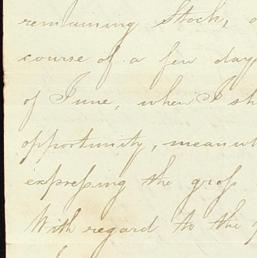 remaining Stock, o
course of a few day
of June, when I sh
opportunity, meanwh
expressing the grof
With regard to the g